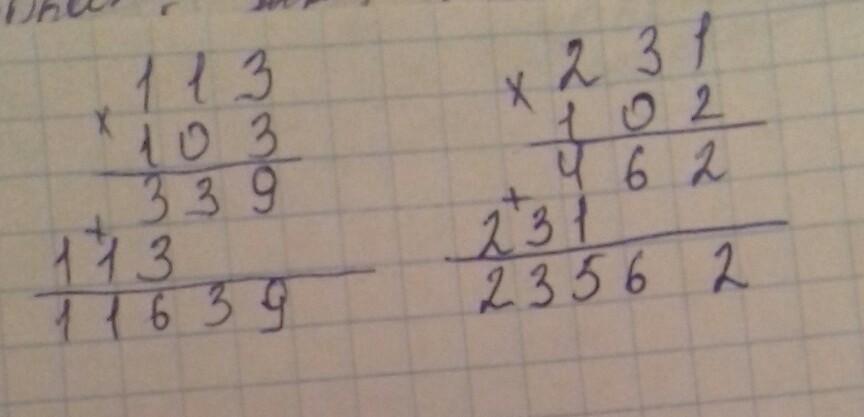 113
× 103
339
+
113
11639
231
× 102
462
+
231
23562